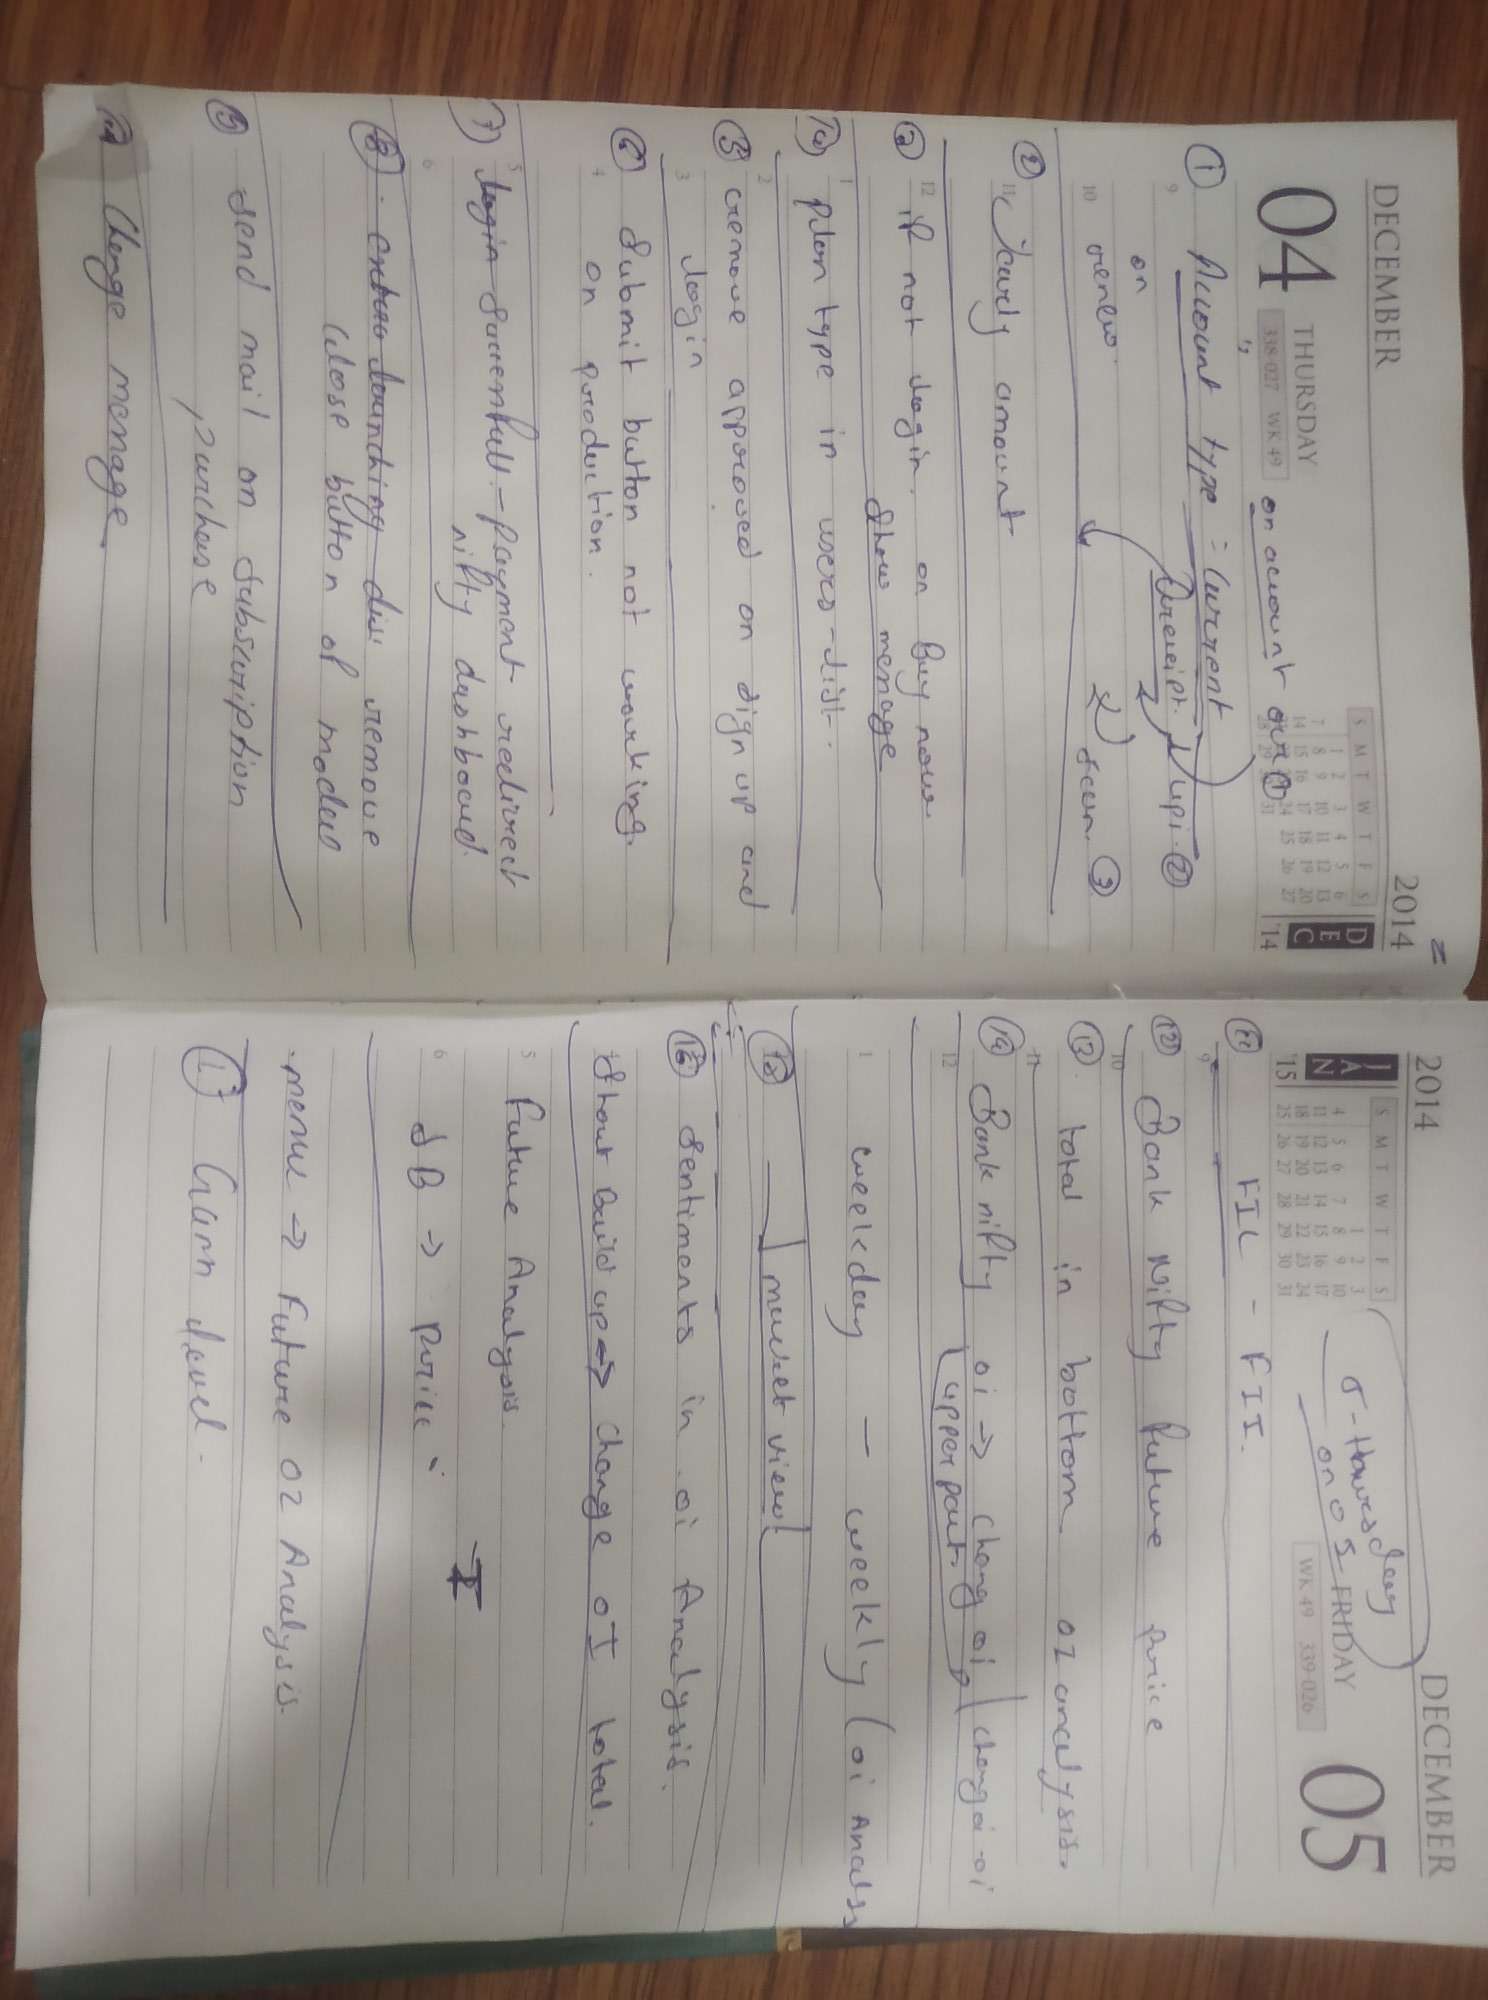 DECEMBER 2014
04 THURSDAY
338-027 WK 49
S M T W T F S
1 2 3 4 5 6
7 8 9 10 11 12 13
14 15 16 17 18 19 20
24 25 26 27
28 29 31
DEC '14
on account
① Account type : Current
receipt. upi. ②
on
renew.
scan. ③
② Yearly amount
③ if not login. on Buy now
show message
④ plan type in users-list.
⑤ remove approved on sign up and
login
⑥ Submit button not working.
on production.
7) login successfull - payment redirect
nifty dashboard.
⑧ extra launching dis. remove
close button of modal
⑨ send mail on subscription
purchase
Change message
2014 DECEMBER
JAN '15
S M T W T F S
1 2 3
4 5 6 7 8 9 10
11 12 13 14 15 16 17
18 19 20 21 22 23 24
25 26 27 28 29 30 31
on OI
FRIDAY 05
WK 49 339-026
⑪ FII.
⑫ Bank Nifty future price
⑬ total in bottom OI analysis.
⑭ Bank nifty oi → chang oi | chang oi - oi
upper part.
weekday — weekly (oi Analss
market view
⑯ Sentiments in oi Analysis.
Short Build up → Change OI total.
Future Analysis.
I
SB → price :
menu → Future OI Analysis.
Gann level.